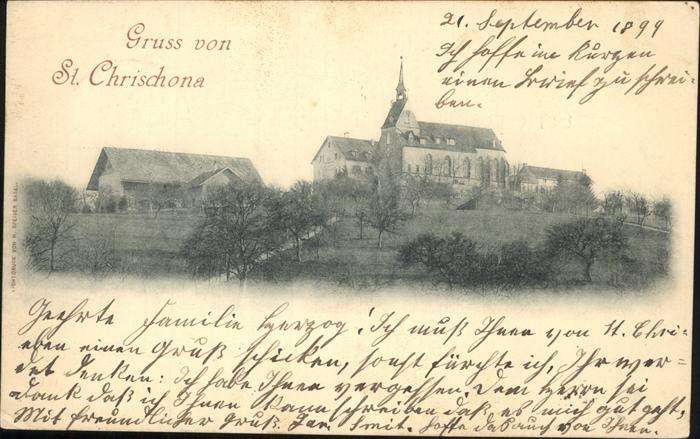 Gruss von
St. Chrischona
21. September 1899
Ich hoffe im Kurzen
einen Brief zu schrei-
ben.
Geehrte Familie Herzog! Ich muß Ihnen von St. Chri-
schona einen Gruß schicken, sonst fürchte ich, Ihr wer-
det denken: Ich habe Ihnen vergessen. Dem Herrn sei
Dank daß ich Ihnen kann schreiben daß es mir gut geht.
Mit freundlicher Gruß Hoffe das auch von Ihnen.